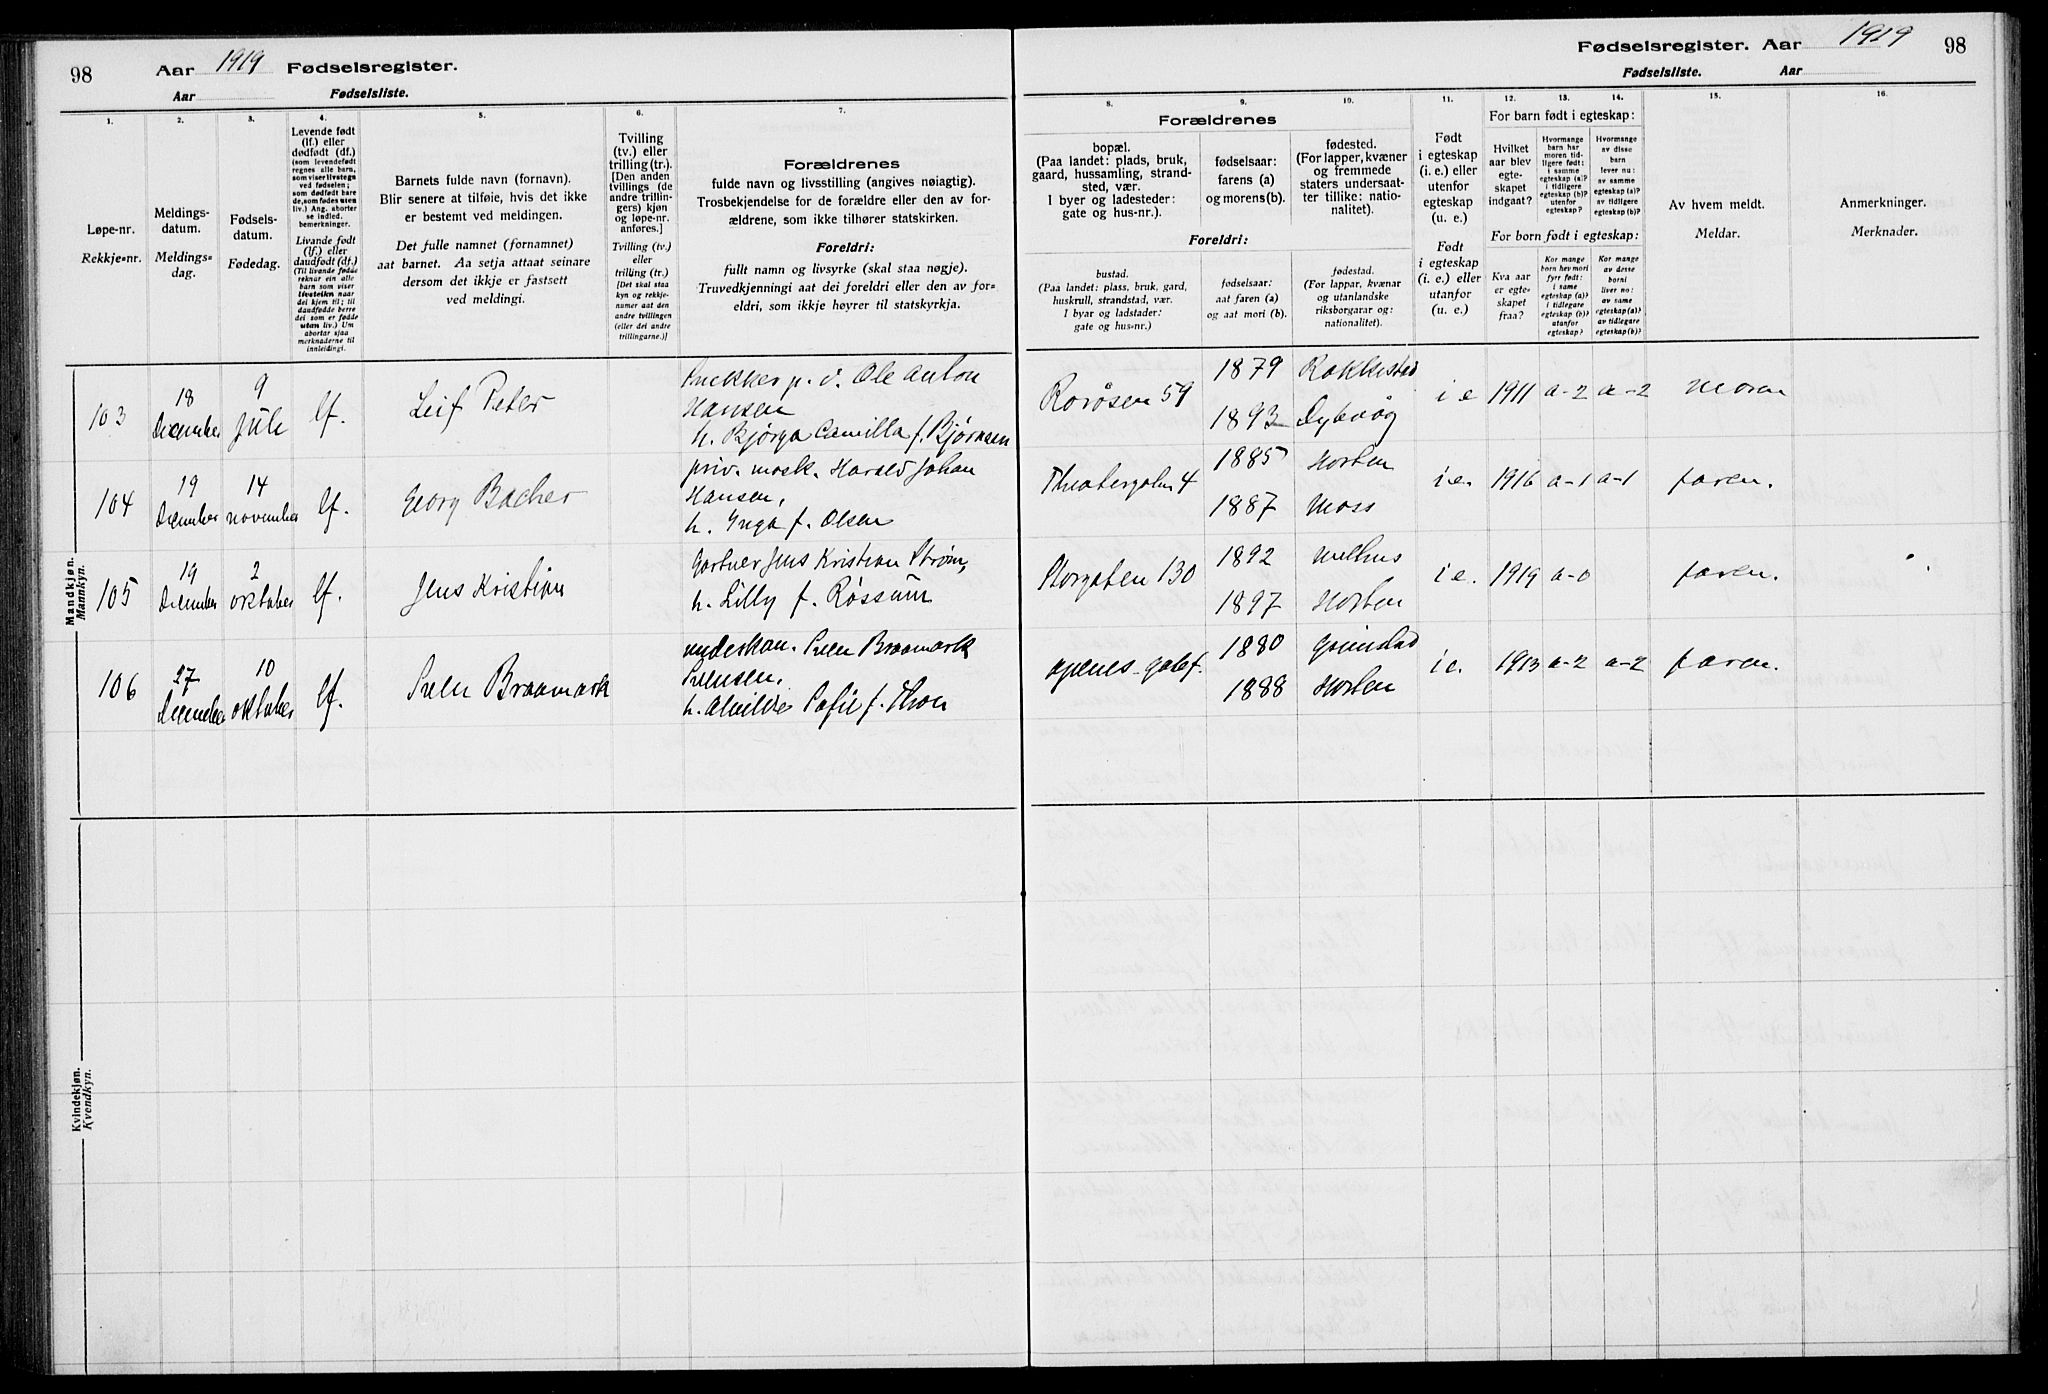 98
Aar 1919 Fødselsregister.
Aar Fødselsliste.
1.
2.
3.
4.
5.
6.
7.
Løpe-nr.
Rekkje-nr.
Meldings-
datum.
Meldings-
dag.
Fødsels-
datum.
Fødedag.
Levende født
(lf.) eller
dødfødt (df.)
(som levendefødt
regnes alle barn,
som viser livstegn
ved fødselen;
som dødfødt bare
de, som fødes uten
liv.) Ang. aborter
se indled.
bemerkninger.
Livande født
(lf.) eller
daudfødt (df.)
(Til livande fødde
reknar ein alle
barn som viser
livsteikn naar
dei kjem til; til
daudfødde berre
dei som er fødde
utan liv.) Um
abortar sjaa
merknaderne til
innleidingi.
Barnets fulde navn (fornavn).
Blir senere at tilføie, hvis det ikke
er bestemt ved meldingen.
Det fulle namnet (fornamnet)
aat barnet. Aa setja attaat seinare
dersom det ikkje er fastsett
ved meldingi.
Tvilling
(tv.) eller
trilling (tr.).
[Den anden
tvillings (de
andre trillin-
gers) kjøn
og løpe-nr.
anføres.]
Tvilling (tv.)
eller
trilling (tr.)
[Det skal staa
kyn og rekkje-
numer aat den
andre tvillingen
(eller dei andre
trillingarne.)]
Forældrenes
fulde navn og livsstilling (angives nøiagtig).
Trosbekjendelse for de forældre eller den av for-
ældrene, som ikke tilhører statskirken.
Foreldri:
fullt namn og livsyrke (skal staa nøgje).
Truvedkjenningi aat dei foreldri eller den av for-
eldri, som ikkje høyrer til statskyrkja.
Mandkjøn.
Mannkyn.
103
18
December
9
Juli
lf.
Leif Peter
Snekker p. v. Ole Anton
Hansen
h. Bjørga Camilla f. Bjørnsen
104
19
December
14
november
lf.
Georg Bacher
priv. mosk. Harald Johan
Hansen,
h. Inga f. Olsen
105
19
December
2
oktober
lf.
Jens Kristian
Gartner Jens Kristian Strøm,
h. Lilly f. Røssum
106
27
December
10
oktober
lf.
Sven Braamark
underkan. Sven Braamark
Svensen,
h. Alvilde Sofie f. Thon
Kvindekjøn.
Kvendkyn.
Fødselsregister. Aar 1919
98
Fødselsliste. Aar
8.
9.
10.
11.
12.
13.
14.
15.
16.
Forældrenes
bopæl.
(Paa landet: plads, bruk,
gaard, hussamling, strand-
sted, vær.
I byer og ladesteder:
gate og hus-nr.).
fødselsaar:
farens (a)
og morens (b).
fødested.
(For lapper, kvæner
og fremmede
staters undersaat-
ter tillike: natio-
nalitet).
Foreldri:
bustad.
(Paa landet: plass, bruk, gard,
huskrull, strandstad, vær.
I byar og ladstader:
gate og hus-nr.)
fødselsaar:
aat faren (a)
og aat mori (b).
fødestad.
(For lappar, kvænar
og utanlandske
riksborgarar og:
nationalitet).
Født
i egteskap
(i. e.) eller
utenfor
egteskap
(u. e.)
Født
i egteskap
(i. e.) eller
utanfor
(u. e.)
For barn født i egteskap:
Hvilket
aar blev
egte-
skapet
indgaat?
Hvormange
barn har
moren tid-
ligere født:
i samme
egteskap (a)?
i tidligere
egteskap (b)?
utenfor
egteskap?
Hvormange
av disse
barn
lever nu:
av samme
egteskap (a)?
av tidligere
egteskap (b)?
For born født i egteskap:
Kva aar
er egte-
skapet
fraa?
Kor mange
born hev mori
fyrr født:
i same
egteskap (a)?
i tidlegare
egteskap (b)?
utanfor
egteskap?
Kor mange
av desse
borni
liver no:
av same
egteskap (a)?
av tidlegare
egteskap (b)?
Av hvem meldt.
Meldar.
Anmerkninger.
Merknader.
Rorøsen 59
1879
1893
Rakkestad
Dybvåg
i e
1911
a-2
a-2
moren
Theatergaten 4
1885
1887
Horten
Moss
i e.
1916
a-1
a-1
faren.
Storgaten 130
1892
1897
Melhus
Horten
i e.
1919
a-0
faren.
1880
1888
Grimstad
Horten
i e.
1913
a-2
a-2
faren.